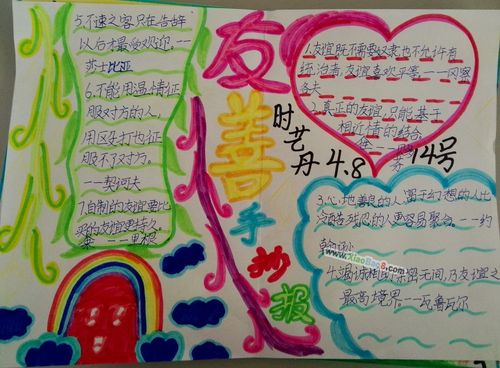 友善手抄报
时艺丹 4.8 14号
1.友谊既不需要奴隶也不允许有
统治者,友谊喜欢平等。——冈察
洛夫
2.真正的友谊,只能基于
相近情的结合
3.心地善良的人,富于幻想的人比
冷酷残忍的人更容易聚合。——约
翰逊
4.竭诚相助亲密无间,乃友谊之
最高境界——瓦鲁瓦尔
5.不速之客只在告辞
以后才最受欢迎。——
莎士比亚
6.不能用温情征
服对方的人,
用殴打也征
服不了对方。
——契诃夫
7.自制的友谊要比
买的友谊更持久
——里根
www.XiaoBao8.com